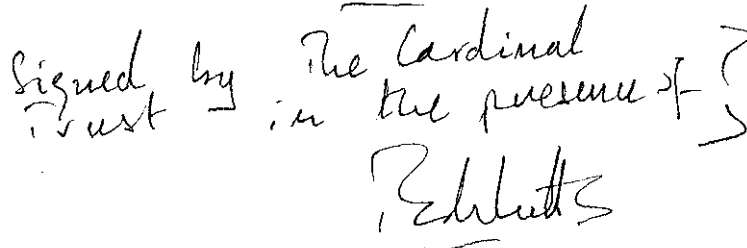 Signed by The Cardinal
Trust in the presence of }